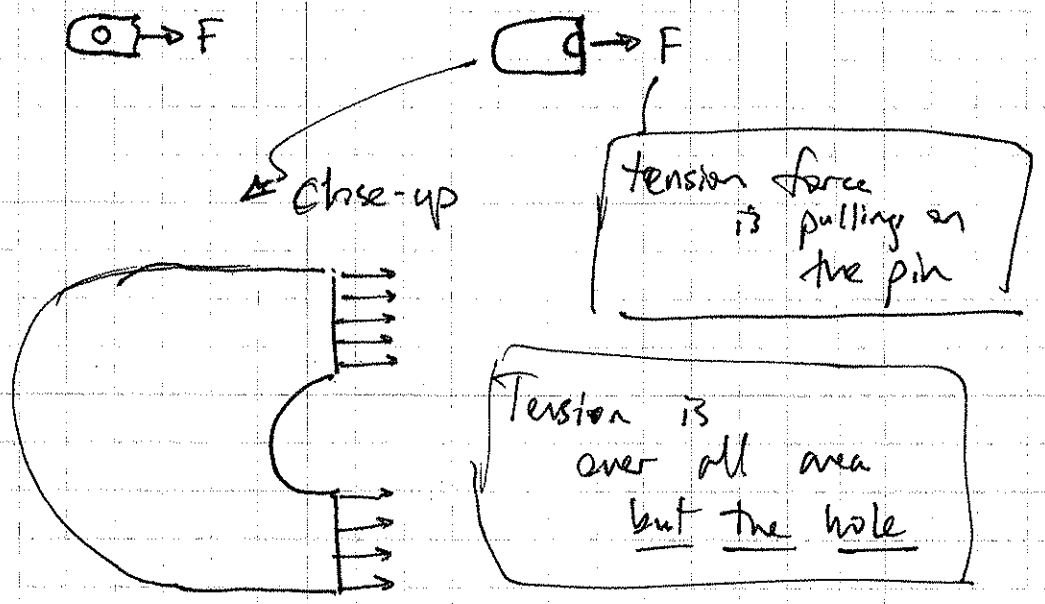 F
F
Close-up
tension force
is pulling on
the pin
Tension is
over all area
but the hole